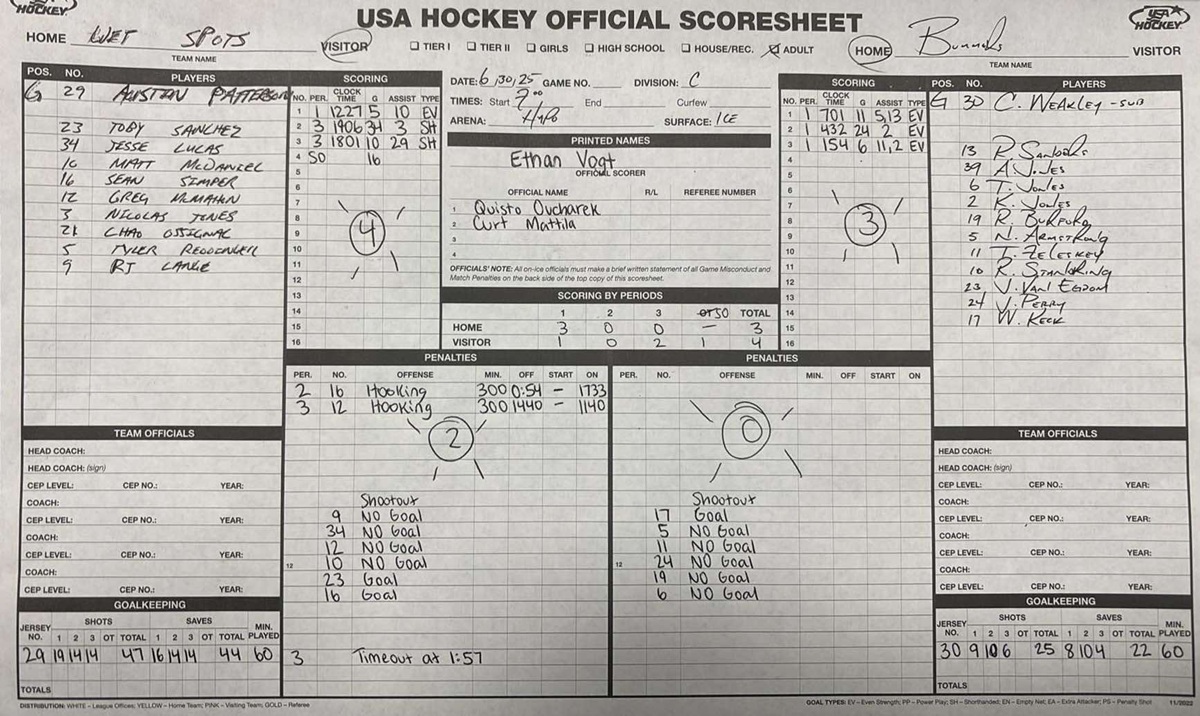 HOCKEY
USA HOCKEY OFFICIAL SCORESHEET
USA HOCKEY
HOME WET SPOTS VISITOR
TEAM NAME
☐ TIER I ☐ TIER II ☐ GIRLS ☐ HIGH SCHOOL ☐ HOUSE/REC. ☒ ADULT
HOME VISITOR
TEAM NAME
POS. NO. PLAYERS
G 29 AUSTIN PATTERSON
23 TOBY SANCHEZ
34 JESSE LUCAS
10 MATT McDANIEL
16 SEAN SIMPER
12 GREG McMAHIN
3 NICOLAS JONES
21 CHAD OSSIGNAL
5 TYLER
9 RJ LANGE
SCORING
NO. PER. CLOCK TIME G ASSIST TYPE
1 1 1227 5 10 EV
2 3 1906 34 3 SH
3 3 1801 10 29 SH
4 SO 16
5
6
7
8
9
10
11
12
13
14
15
16
4
DATE: 6/30/25 GAME NO. DIVISION: C
TIMES: Start 9:00 End Curfew
ARENA: HYPO SURFACE: ICE
PRINTED NAMES
Ethan Vogt
OFFICIAL SCORER
OFFICIAL NAME R/L REFEREE NUMBER
1 Quisto Oucharek
2 Curt Mattila
3
4
OFFICIALS' NOTE: All on-ice officials must make a brief written statement of all Game Misconduct and
Match Penalties on the back side of the top copy of this scoresheet.
SCORING BY PERIODS
1 2 3 OT SO TOTAL
HOME 3 0 0 – 3
VISITOR 1 0 2 1 4
SCORING
NO. PER. CLOCK TIME G ASSIST TYPE
1 1 701 11 5,13 EV
2 1 432 24 2 EV
3 1 154 6 11,2 EV
4
5
6
7
8
9
10
11
12
13
14
15
16
3
POS. NO. PLAYERS
G 30 C. WEAKLEY - SUB
13 R.
39 A. JONES
6 T. JONES
2 K. JONES
19 R. BURFORD
5 N. ARMSTRONG
11 T. ZELESKEY
10 R. STANDRING
23 J. VAN EGDOM
24 J. PERRY
17 W. KECK
PENALTIES
PER. NO. OFFENSE MIN. OFF START ON
2 16 Hooking 300 0:54 – 1733
3 12 HOOKING 300 1440 – 1140
2
Shootout
9 NO Goal
34 NO Goal
12 NO Goal
12 10 NO Goal
23 Goal
16 Goal
3 Timeout at 1:57
PENALTIES
PER. NO. OFFENSE MIN. OFF START ON
0
Shootout
17 Goal
5 NO Goal
11 NO Goal
12 24 NO Goal
19 NO Goal
6 NO Goal
TEAM OFFICIALS
HEAD COACH:
HEAD COACH: (sign)
CEP LEVEL: CEP NO.: YEAR:
COACH:
CEP LEVEL: CEP NO.: YEAR:
COACH:
CEP LEVEL: CEP NO.: YEAR:
COACH:
CEP LEVEL: CEP NO.: YEAR:
GOALKEEPING
JERSEY NO. SHOTS SAVES MIN. PLAYED
1 2 3 OT TOTAL 1 2 3 OT TOTAL
29 19 14 14 47 16 14 14 44 60
TOTALS
TEAM OFFICIALS
HEAD COACH:
HEAD COACH: (sign)
CEP LEVEL: CEP NO.: YEAR:
COACH:
CEP LEVEL: CEP NO.: YEAR:
COACH:
CEP LEVEL: CEP NO.: YEAR:
COACH:
CEP LEVEL: CEP NO.: YEAR:
GOALKEEPING
JERSEY NO. SHOTS SAVES MIN. PLAYED
1 2 3 OT TOTAL 1 2 3 OT TOTAL
30 9 10 6 25 8 10 4 22 60
TOTALS
DISTRIBUTION: WHITE – League Offices; YELLOW – Home Team; PINK – Visiting Team; GOLD – Referee
GOAL TYPES: EV – Even Strength; PP – Power Play; SH – Shorthanded; EN – Empty Net; EA – Extra Attacker; PS – Penalty Shot 11/2022